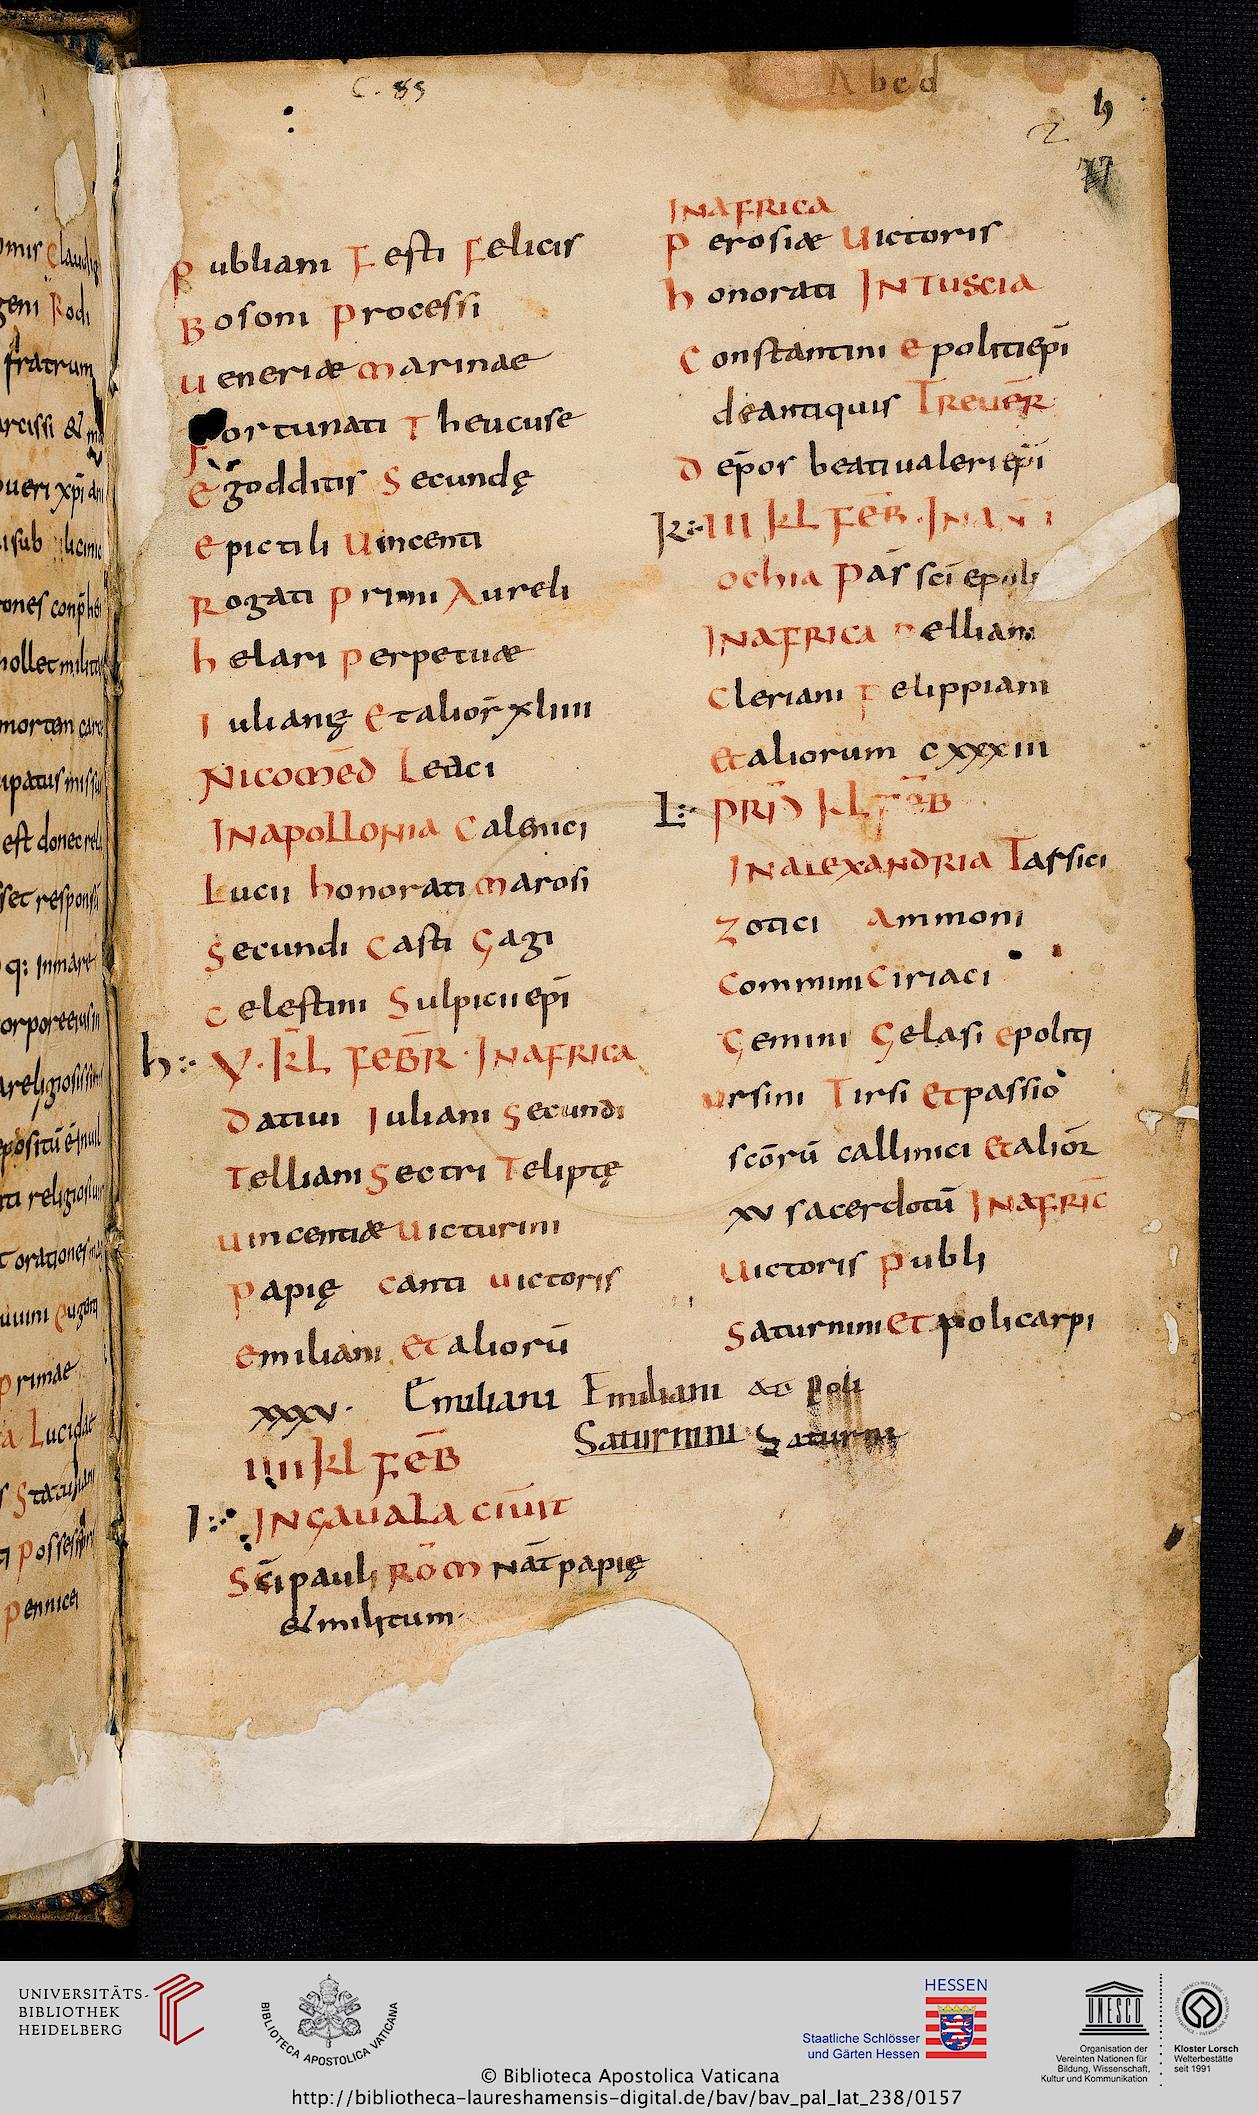 C. 85
Abcd
h
2
Publiani Festi Felicis
Bosoni Processi
Ueneriæ Marinae
Fortunati Theucuse
Egodditis Secundę
Epictili Uincenti
Rogati Primi Aureli
helari perpetuæ
Iulianę Etalior̄ xliiii
Nicomēd Leuci
INapollonia Calenici
Lucii honorati Marosi
Secundi Casti Gagi
Celestini Sulpicii ep̄i
h: V. kl FEB̄R. INAFRICA
Datiui Iuliani Secundi
Telliani Sectri Teliptę
Uincentiæ Uicturini
Papię Canti Uictoris
Emiliani Etaliorū
xxxv. Emiliani Emiliani ae poli
Saturnini Saturni
IIII kl FEB̄
I: INGAUALA CIUIT
Sc̄i pauli RŌM NAT̄ papię
& militum.
INAFRICA
Perosiæ Uictoris
honorati INTUSCIA
Constantini Epoliti ep̄i
de antiquis Treuēr
Dep̄os beati ualeri ep̄i
k: III kl FEB̄. INAN̄TI
ochia Pas̄ sc̄i epoli
INAFRICA Pelliani
Cleriani Felippiani
Etaliorum cxxxiii
L: PRID̄ kl FEB̄
INALEXANDRIA Tarsici
Zotici Ammoni
Commini Ciriaci
Gemini Gelasi Epoliti
Ursini Tirsi Et passio
sc̄orū callinici Etalior̄
xv sacerdotū INAFRIC̄
Uictoris Publi
Saturnini Et policarpi
omis Claudi
geni Rodi
fratrum
arcissi &
pueri xp̄i
nollet
mortem care
ipatus missus
est donec
set
q: inmare
religiosissim
orationes
Primae
a Lucidat
Possessor
Pennicei
UNIVERSITÄTS-
BIBLIOTHEK
HEIDELBERG
BIBLIOTECA APOSTOLICA VATICANA
HESSEN
Staatliche Schlösser
und Gärten Hessen
UNESCO
Organisation der
Vereinten Nationen für
Bildung, Wissenschaft,
Kultur und Kommunikation
Kloster Lorsch
Welterbestätte
seit 1991
© Biblioteca Apostolica Vaticana
http://bibliotheca-laureshamensis-digital.de/bav/bav_pal_lat_238/0157